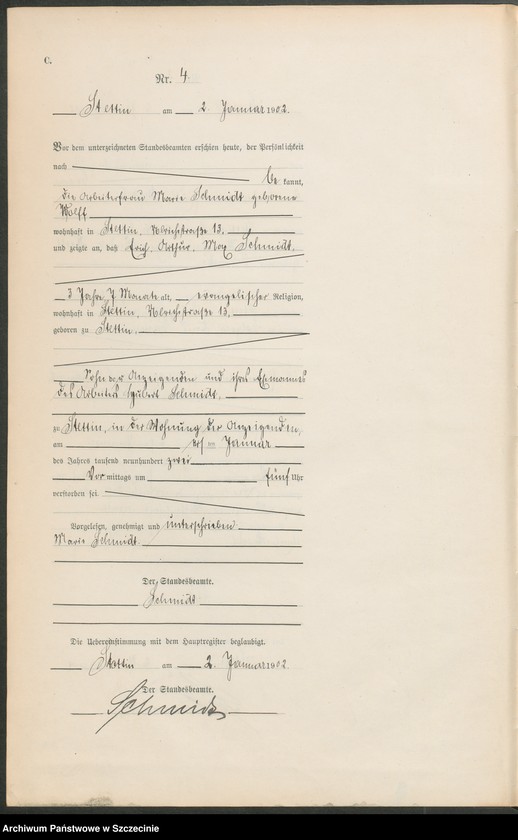 C.
Nr. 4.
Stettin am 2. Januar 1902.
Vor dem unterzeichneten Standesbeamten erschien heute, der Persönlichkeit
nach
be kannt,
die Arbeiterfrau Marie Schmidt geborene
Wolff
wohnhaft in Stettin, Ulrichstraße 13,
und zeigte an, daß Erich Arthur Max Schmidt,
3 Jahre 7 Monate alt, evangelischer Religion,
wohnhaft in Stettin, Ulrichstraße 13,
geboren zu Stettin,
Sohn der Anzeigenden und ihres Ehemannes
des Arbeiters Hubert Schmidt,
zu Stettin, in der Wohnung der Anzeigenden,
am ten Januar
des Jahres tausend neunhundert zwei
Vor mittags um fünf Uhr
verstorben sei.
Vorgelesen, genehmigt und unterschrieben
Marie Schmidt.
Der Standesbeamte.
Schmidt
Die Uebereinstimmung mit dem Hauptregister beglaubigt.
Stettin am 2. Januar 1902.
Der Standesbeamte.
Schmidt
Archiwum Państwowe w Szczecinie